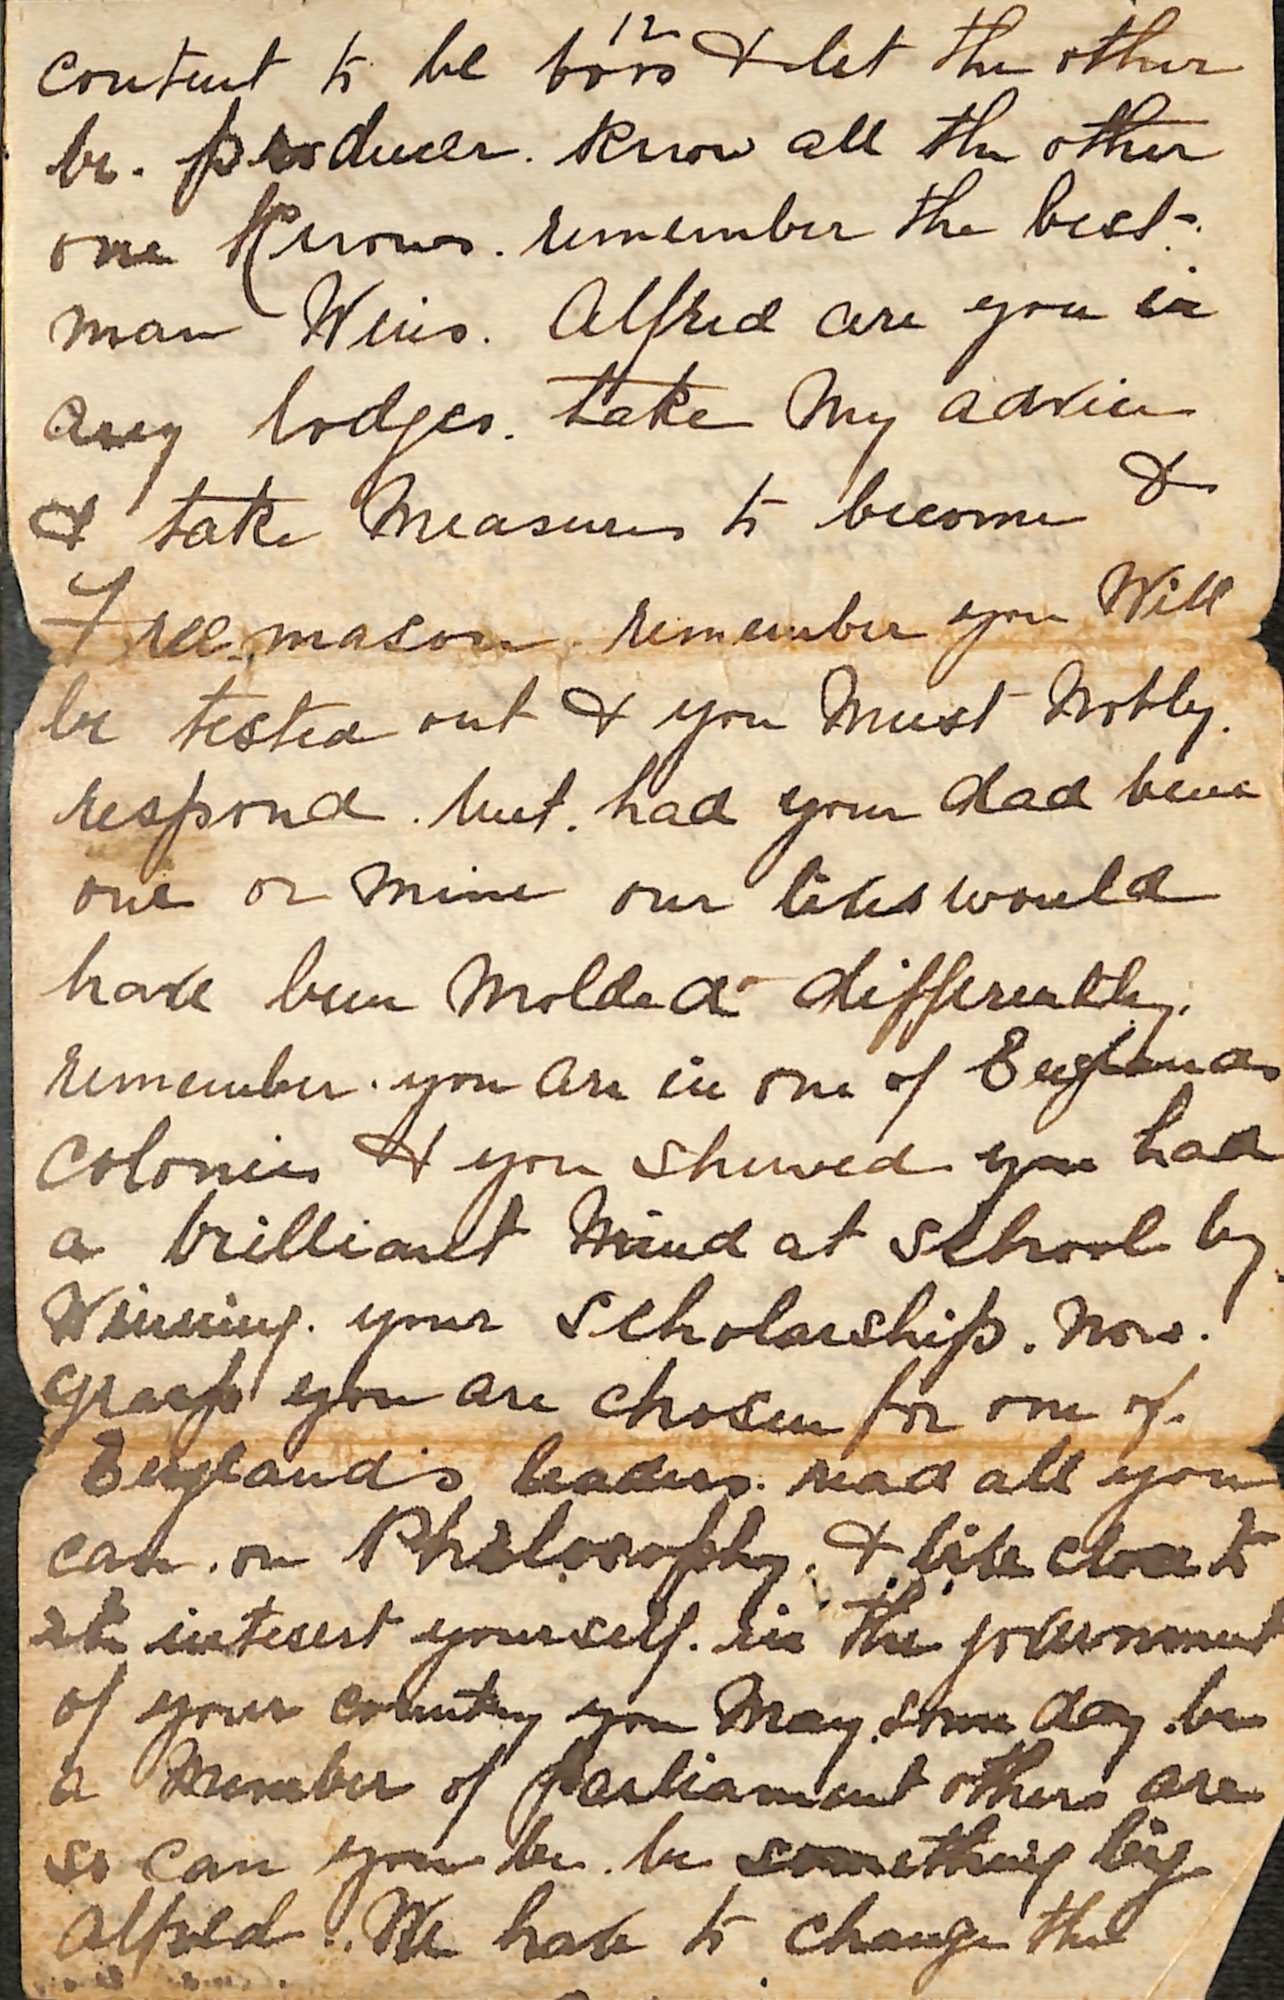 12
content to be boss & let the other
be. producer. Know all the other
one Knows. remember the best.
man Wins. Alfred are you in
any lodges. take My advice
& take Measures to become a
Free mason. remember you Will
be tested out & you Must Nobly.
respond. but. had your dad been
one or mine our lives would
have been Molded differently.
remember. you are in one of Englands
Colonies & you shewed you had
a brilliant Mind at school by
Winning. your Scholarship. Now.
grasp you are chosen for one of.
England's leaders. read all you
can. on Philosophy. & live close to
it interest yourself. in the government
of your country you May some day. be
a Member of parliament others are
so can you be. be something big
Alfred. We have to change the